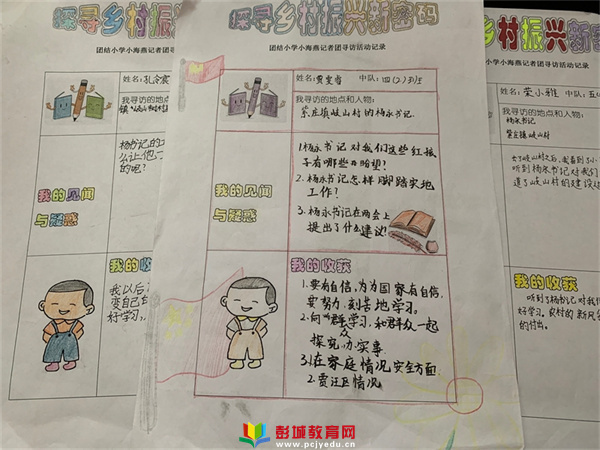 探寻乡村振兴
团结小学小海燕记者团寻访活动记录
姓名:孔令宸
我寻访的地点
杨书记的
么让他
的呢?
我的见闻
与疑惑
我的收
我以后
变自己
好学习,
探寻乡村振兴新密码
团结小学小海燕记者团寻访活动记录
姓名: 中队:四(2)班
我寻访的地点和人物:
紫庄镇岐山村的杨永书记
1.杨永书记对我们这些红孩
子有哪些盼望?
2.杨永书记怎样脚踏实地
工作?
3.杨永书记在两会上
提出了什么建议!
我的见闻
与疑惑
我的收获
1.要有自信,为为国家有自信,
要努力、刻苦地学习。
2.向群众学习,和群众一起
探究,办实事
3.1在家庭情况安全方面
2.贾汪区情况
乡村振兴新密
团结小学小海燕记者团寻访活动记录
姓名:荣小雅 中队:五
我寻访的地点和人物:
杨永书记
紫庄镇岐山村
听到杨永书记对我们
道了岐山村的建设
我的收获
听到了杨书记对我
好学习。农村的新风
的付出。
彭城教育网
www.pcjyedu.cn